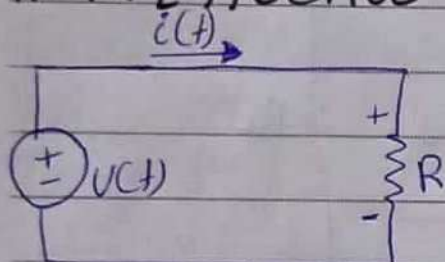 i(t)
+
+
-
V(t)
R
-